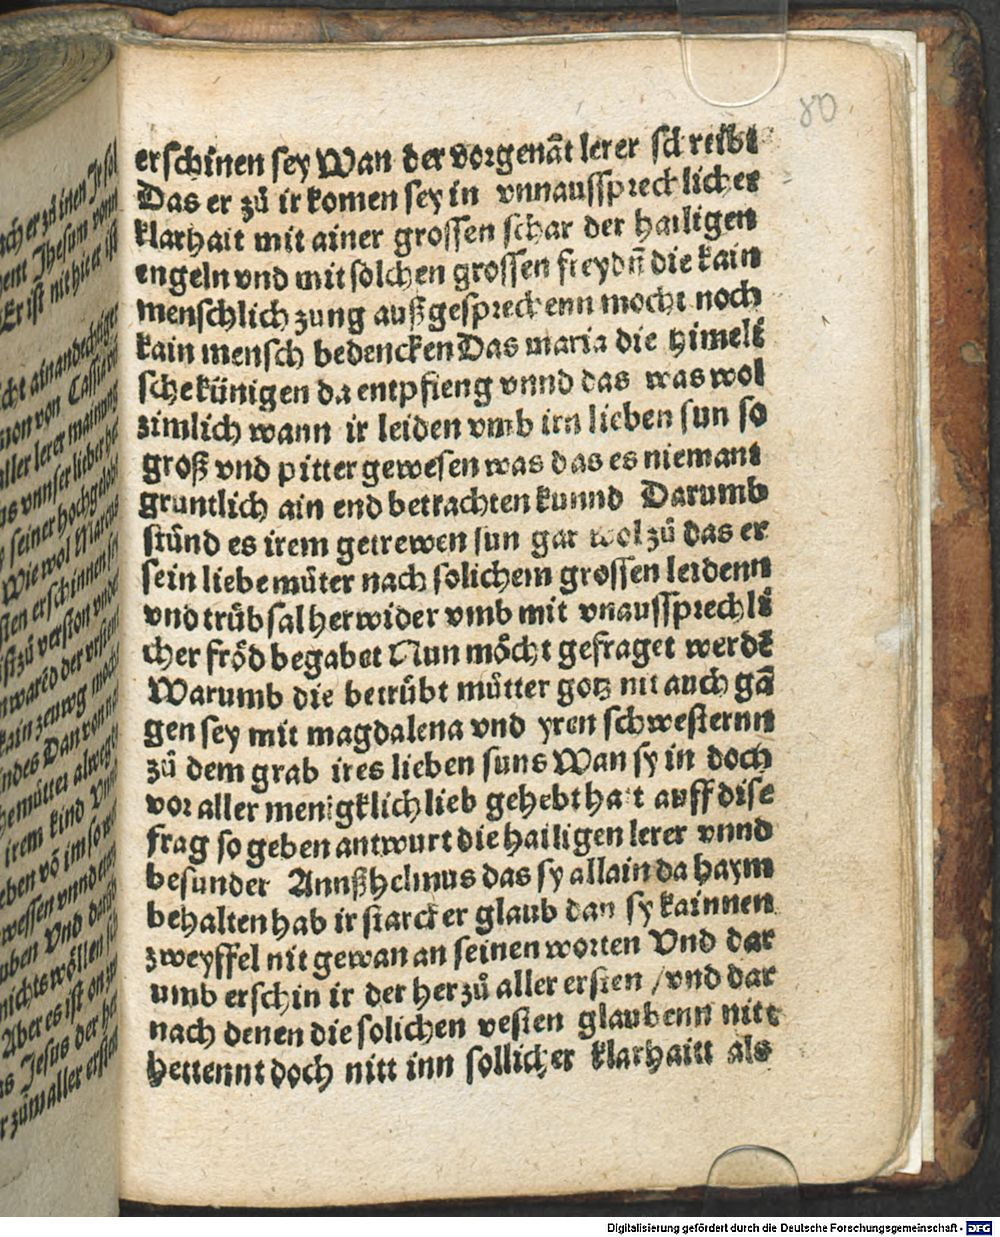 80
erschinen sey Wan der vorgenāt lerer schreibt
Das er zů ir komen sey in vnnaussprechlicher
klarhait mit ainer grossen schar der hailigen
engeln vnd mit solchen grossen freydn̄ die kain
menschlich zung außgesprechenn mocht noch
kain mensch bedencken Das maria die himeli
sche künigen da entpfieng vnnd das was wol
zimlich wann ir leiden vmb irn lieben sun so
groß vnd pitter gewesen was das es niemant
gruntlich ain end betrachten kunnd Darumb
stůnd es irem getrewen sun gar wol zů das er
sein liebe můter nach solichem grossen leidenn
vnd trůbsal herwider vmb mit vnaussprechli
cher fröd begabet Nun möcht gefraget werdē
Warumb die betrůbt můtter gotz nit auch gā
gen sey mit magdalena vnd yren schwesternn
zů dem grab ires lieben suns Wan sy in doch
vor aller menigklich lieb gehebt hat auff dise
frag so geben antwurt die hailigen lerer vnnd
besunder Annßhelmus das sy allain da haym
behalten hab ir starcker glaub dan sy kainnen
zweyffel nit gewan an seinen worten Vnd dar
umb erschin ir der her zů aller ersten / vnd dar
nach denen die solichen vesten glaubenn nitt
hettennt doch nitt inn sollicher klarhaitt als
Digitalisierung gefördert durch die Deutsche Forschungsgemeinschaft - DFG